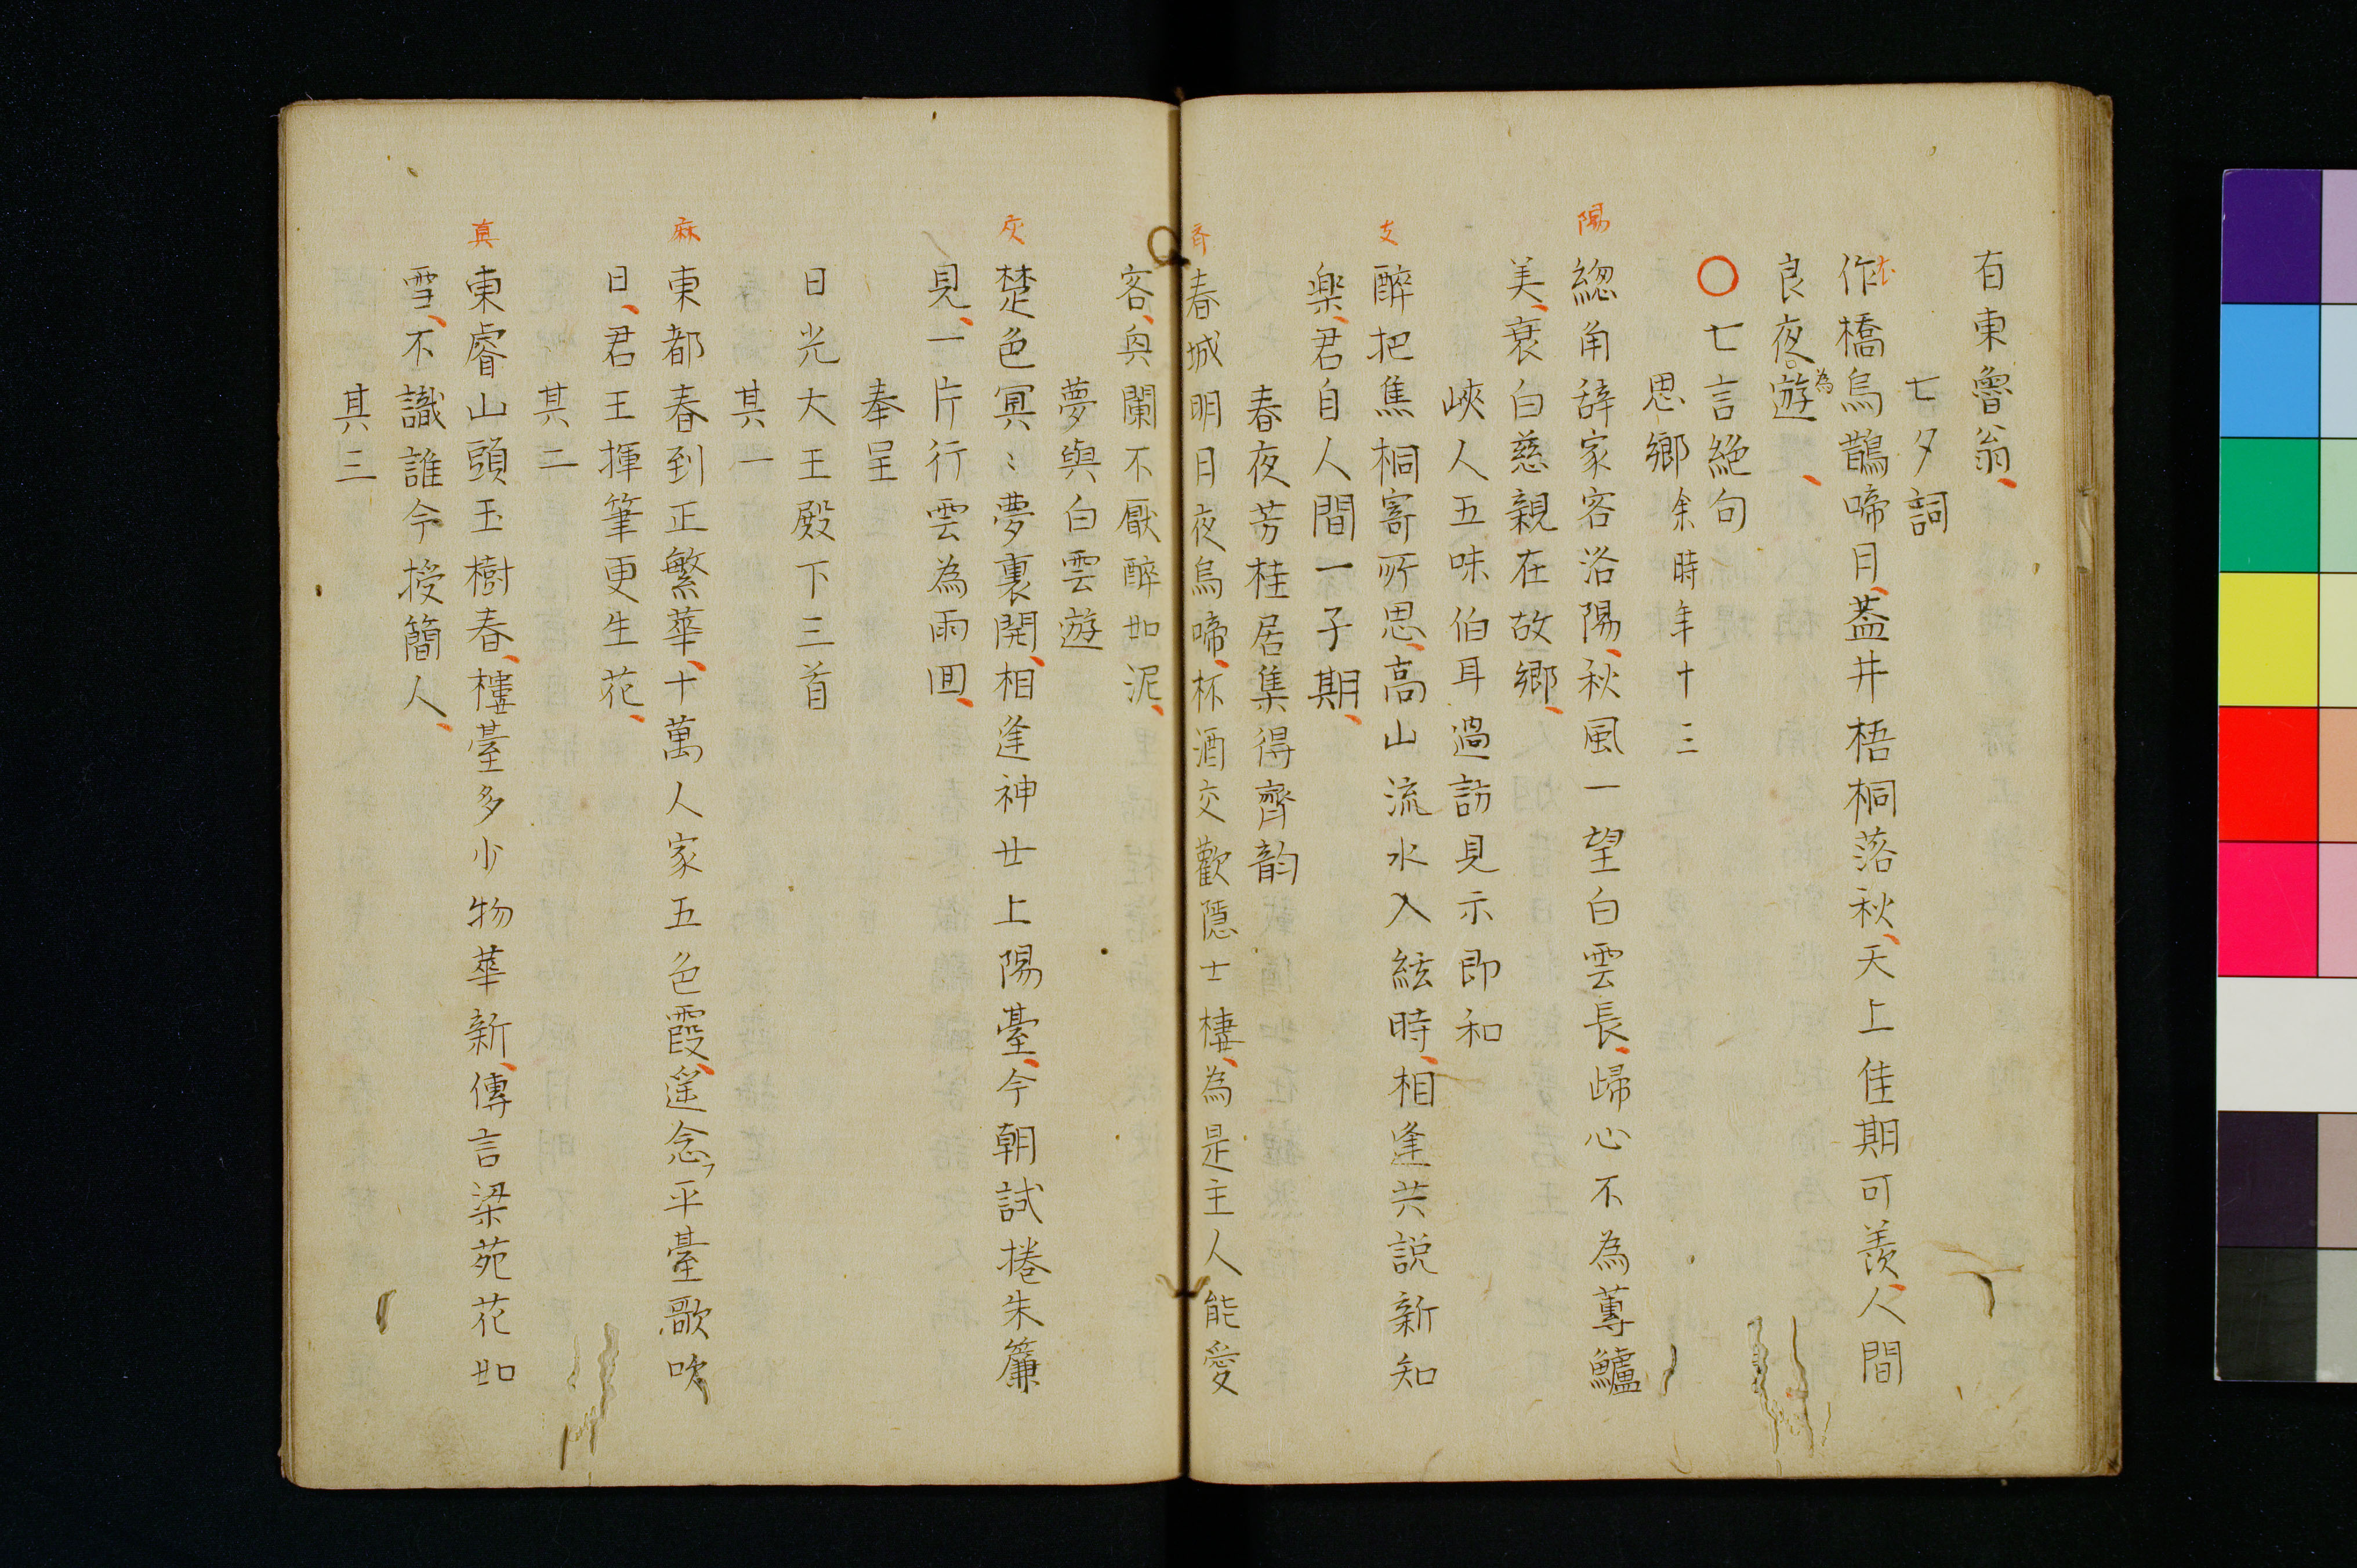 有東魯翁、
七夕詞
作橋烏鵲啼月、葢井梧桐落秋、天上佳期可羨、人間
良夜為遊、
○七言絶句
思郷 余時年十三
陽
緫角辞家客洛陽、秋風一望白雲長、歸心不為蓴鱸
美、衰白慈親在故郷、
峽人五味伯耳過訪見示即和
支
醉把焦桐寄所思、高山流水入絃時、相逢共説新知
楽、君自人間一子期、
春夜芳桂居集得齊韵
齊
春城明月夜烏啼、杯酒交歡隱士棲、為是主人能愛
客、興闌不厭醉如泥、
夢與白雲遊
灰
楚色冥〻夢裏開、相逢神廿上陽臺、今朝試捲朱簾
見、一片行雲為雨囬、
奉呈
日光大王殿下三首
其一
麻
東都春到正繁華、十萬人家五色霞、遥念平臺歌吹
日、君王揮筆更生花、
其二
真
東睿山頭玉樹春、樓臺多少物華新、傳言梁苑花如
雪、不識誰今授簡人、
其三